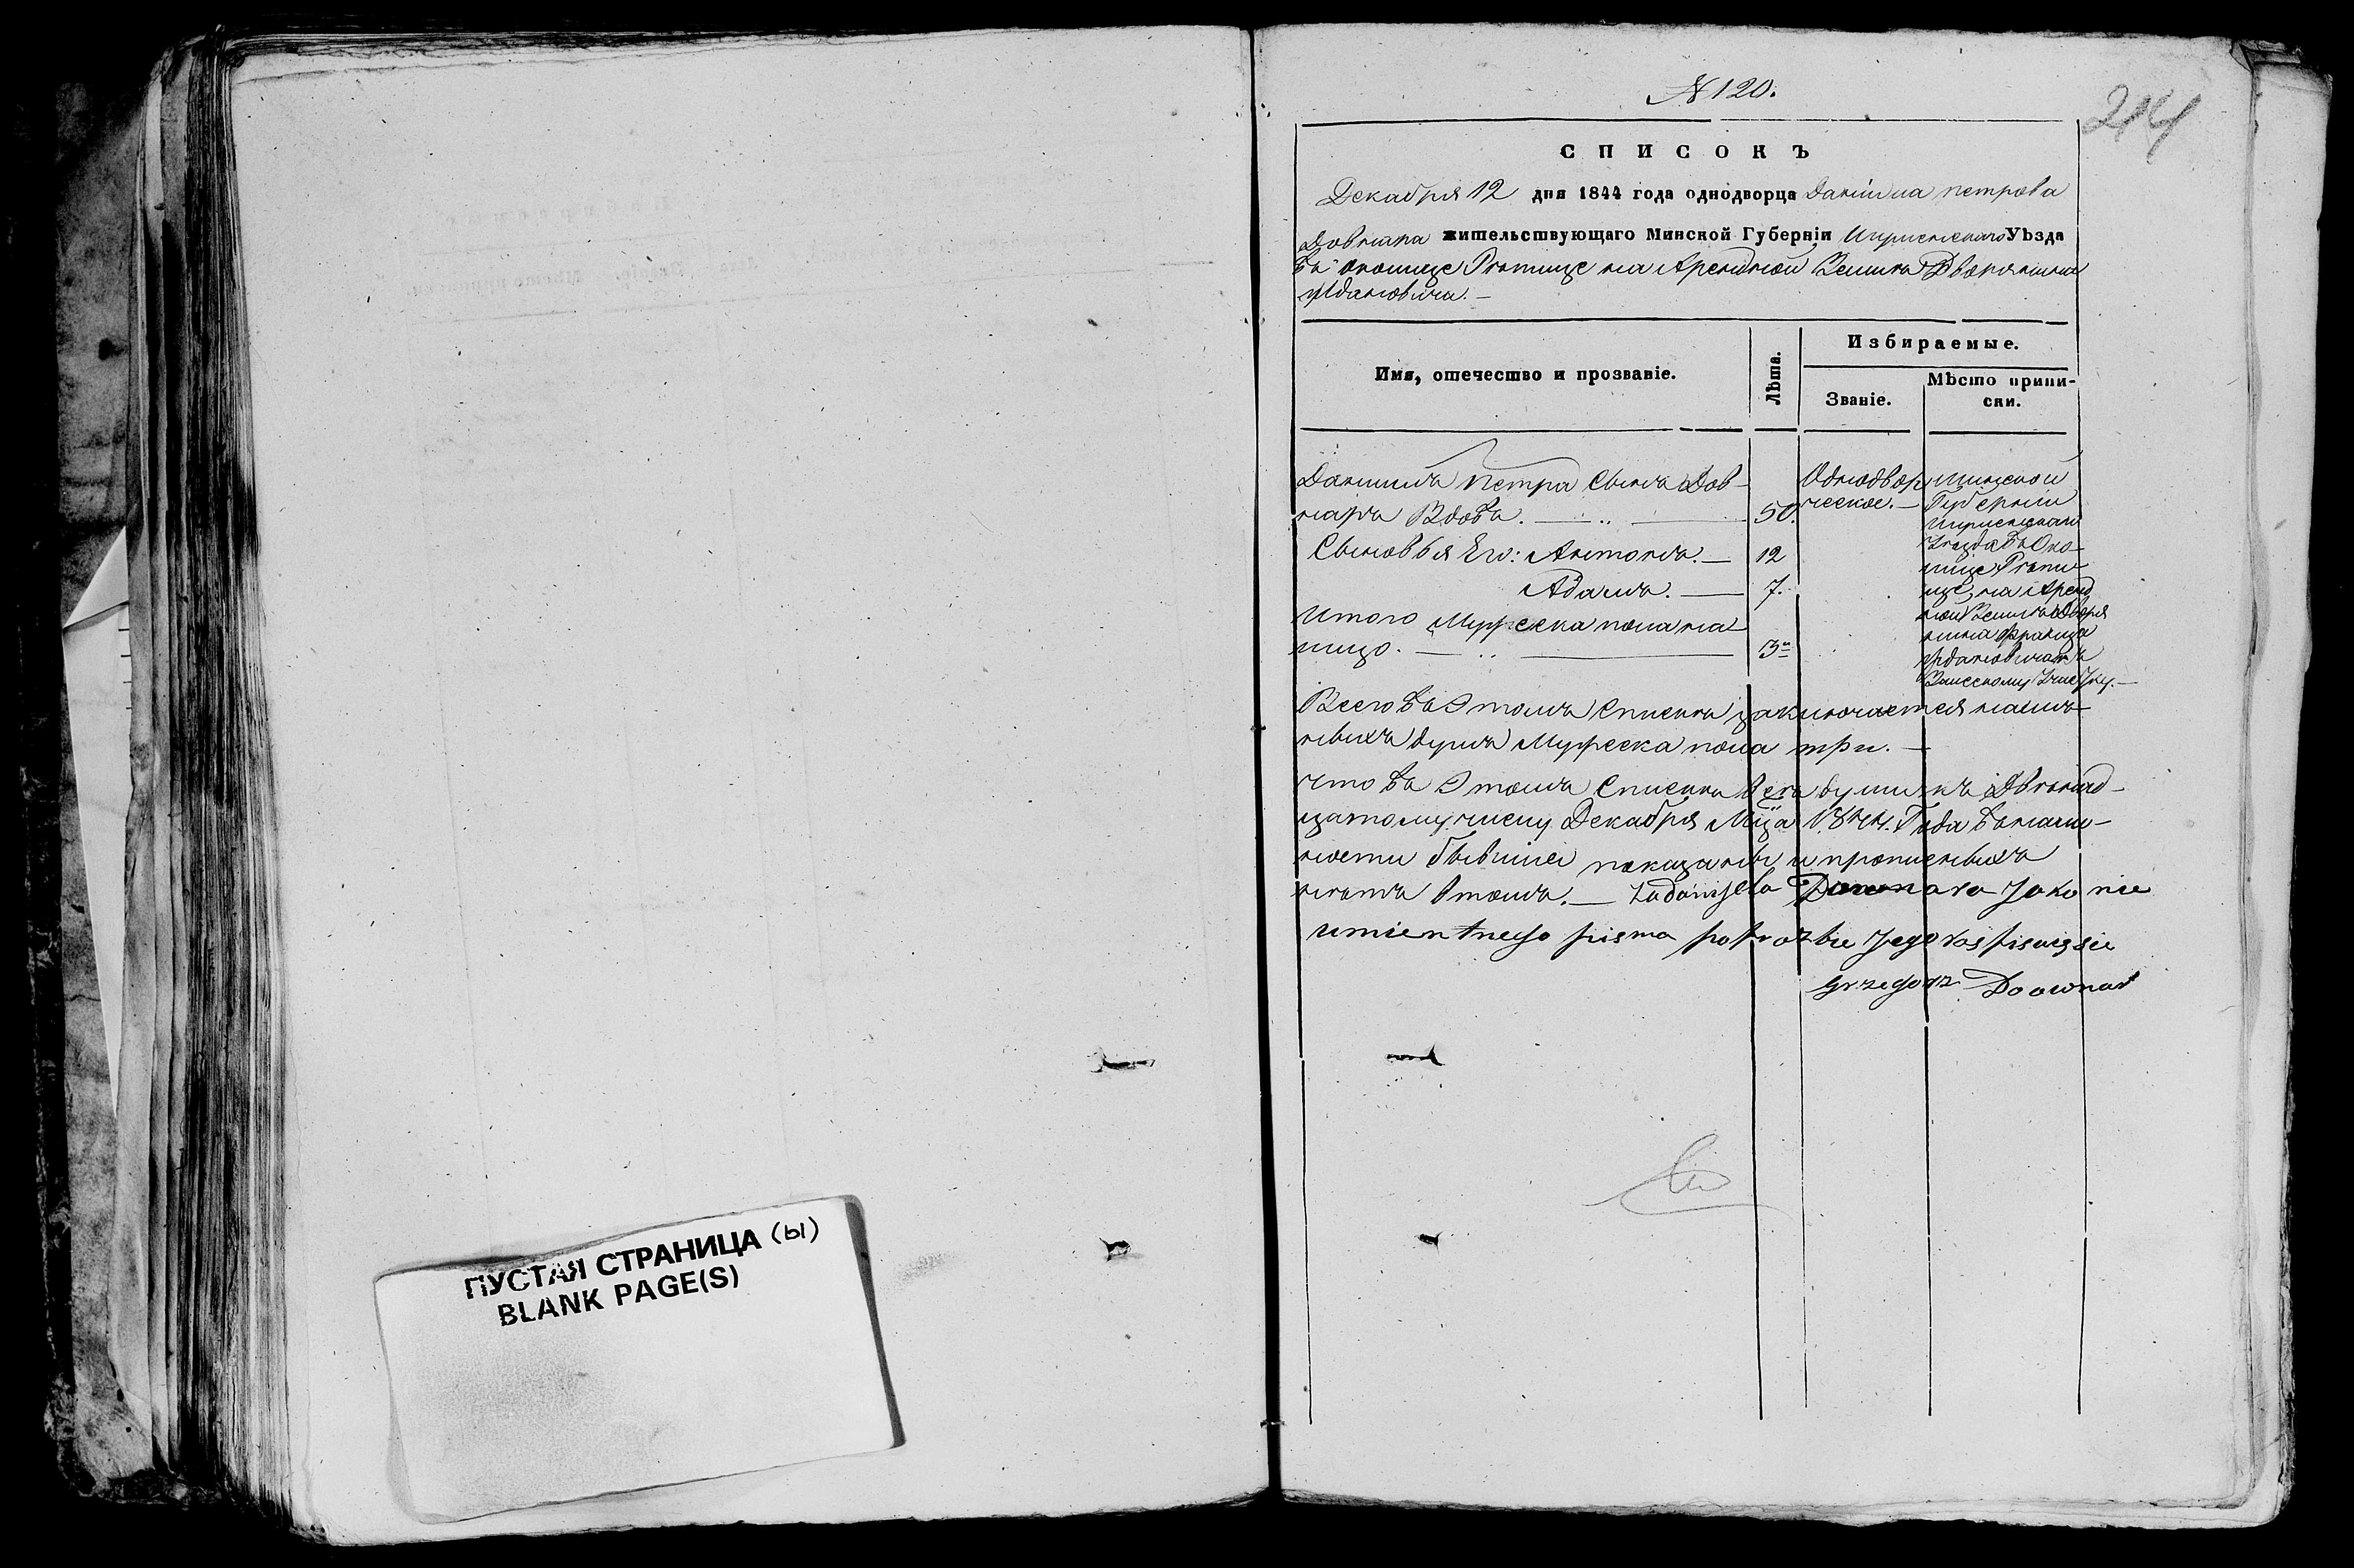 ПУСТАЯ СТРАНИЦА (ы)
BLANK PAGE(S)
N 120.
214
СПИСОКЪ
Декабря 12 дня 1844 года однодворца Данiила петрова
Довнара жительствующаго Минской Губернiи Игуменскаго Уѣзда
въ околице на Арендной Земли Дворянина
Ждановича. —
Имя, отечество и прозванiе.
Лѣта.
Избираемые.
Званiе.
Мѣсто приписки.
Даниилъ Петра Сынъ Дов-
наръ Вдовъ. — 50.
Однодвор
ческое. —
Минской
Губернiи
Игуменскаго
уезда въ Око-
лице
на Аренд
ной Земли Дворя
нина Франца
Ждановича
Сыновья Его: Антонъ. — 12
Адамъ. — 7.
Итого Мужеска пола на
лицо. — 3
Всего въ Этомъ Списки заключается налич-
ныхъ душъ Мужеска пола три. —
что въ Этомъ Списки все души къ Двенад-
цатому числу Декабря Мца 1844. Года в налич-
ности бывшiе показаны и прописныхъ
нетъ втомъ. — Downara Jako nie
umientnego pisma po proźbie Jego
Grzegorz Downar